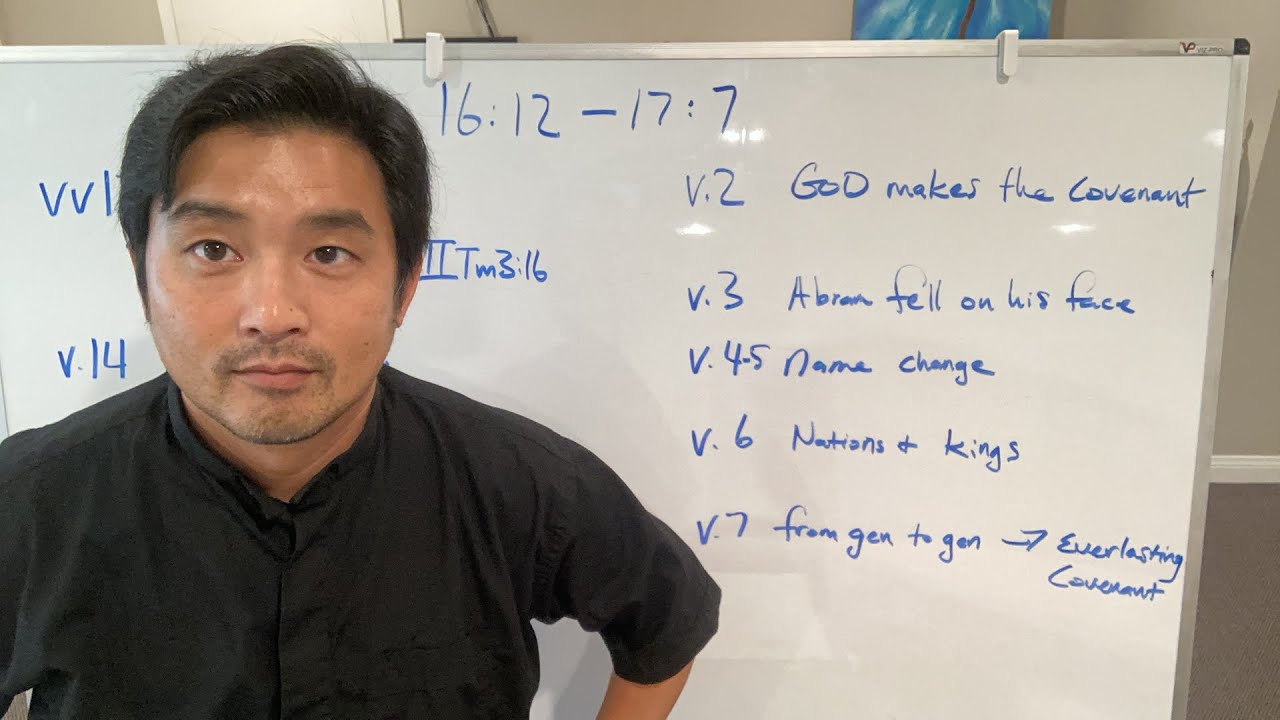 VIZ-PRO
16:12 – 17:7
vv1
v.2 GOD makes the Covenant
II Tm3:16
v.3 Abram fell on his face
v.14
v.4-5 Name change
v.6 Nations & kings
v.7 from gen to gen → Everlasting
Covenant